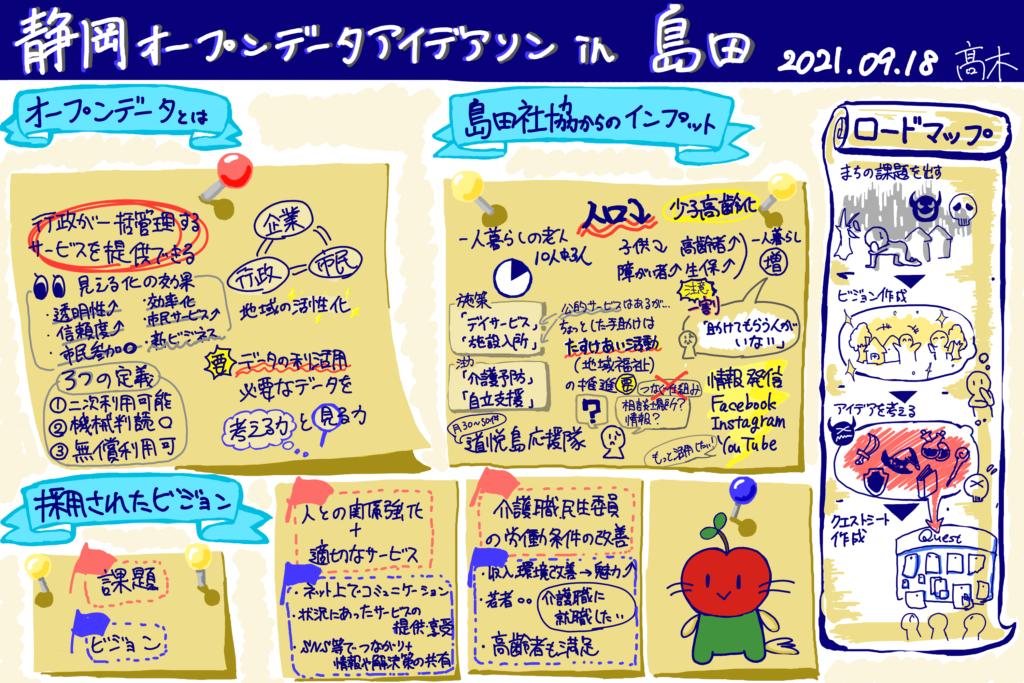 静岡オープンデータアイデアソン in 島田 2021.09.18 髙木
オープンデータとは
行政が一括管理する
サービスを提供できる
見える化の効果
・透明性↑
・信頼度↑
・市民参加
・効率化
市民サービス↑
・新ビジネス
3つの定義
①二次利用可能
②機械判読○
③無償利用可
企業
行政=市民
地域の活性化
要 データの利活用
必要なデータを
考える力と見る力
島田社協からのインプット
人口↓ 少子高齢化
一人暮らしの老人
10人中3人
子供↓ 高齢者↑
障がい者↑ 生保↑
一人暮らし
増
注意
一割
「助けてもらう人が
いない」
施策
「デイサービス」
「施設入所」
公的サービスはあるが…
ちょっとした手助けは
たすけあい活動
(地域福祉)
の推進 要
活力
「介護予防」
「自立支援」
つなぐ仕組み
相談場所?
情報?
?
月30〜50件
道悦島応援隊
情報発信
Facebook
Instagram
YouTube
もっと活用したい!
ロードマップ
まちの課題を出す
ビジョン作成
アイデアを考える
クエストシート
作成
Quest
採用されたビジョン
課題
ビジョン
人との関係強化
+
適切なサービス
・ネット上でコミュニケーション
・状況にあったサービスの
提供享受
・SNS等でつながり+
情報や解決策の共有
介護職、民生委員
の労働条件の改善
・収入、環境改善→魅力↑
・若者。。介護職に
就職したい
・高齢者も満足